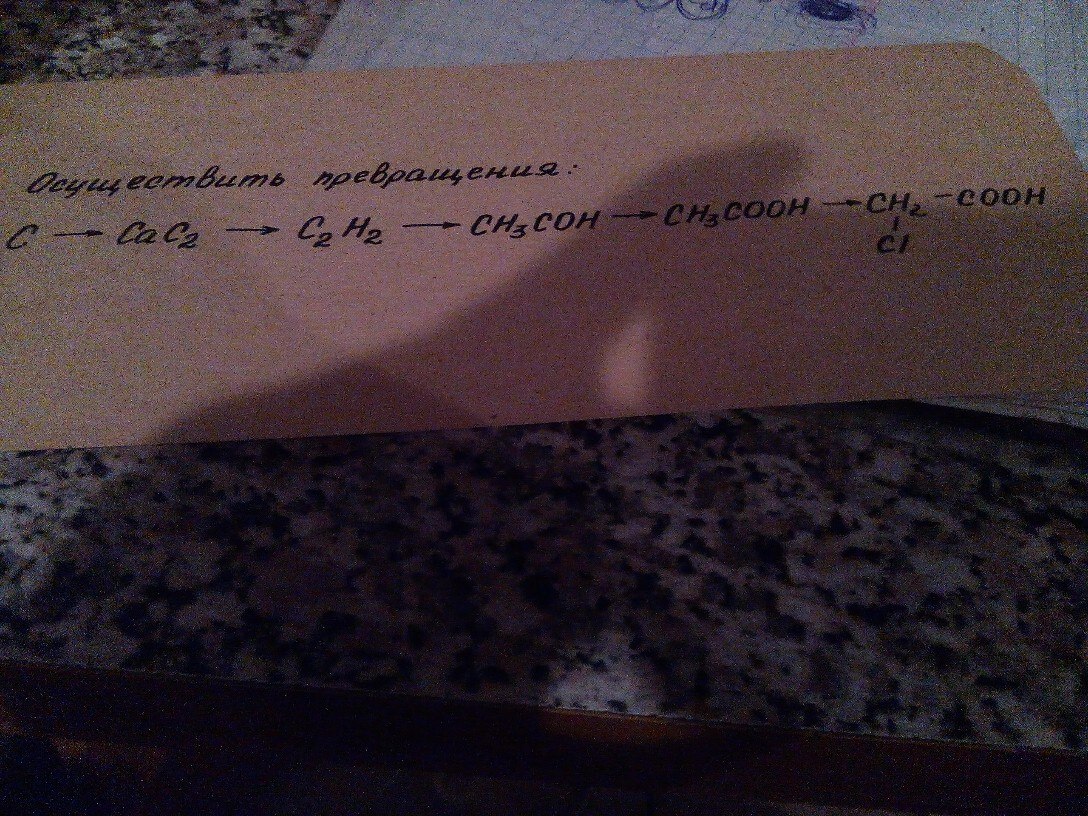 Осуществить превращения:
C → CaC₂ → C₂H₂ → CH₃COH → CH₃COOH → CH₂-COOH
Cl